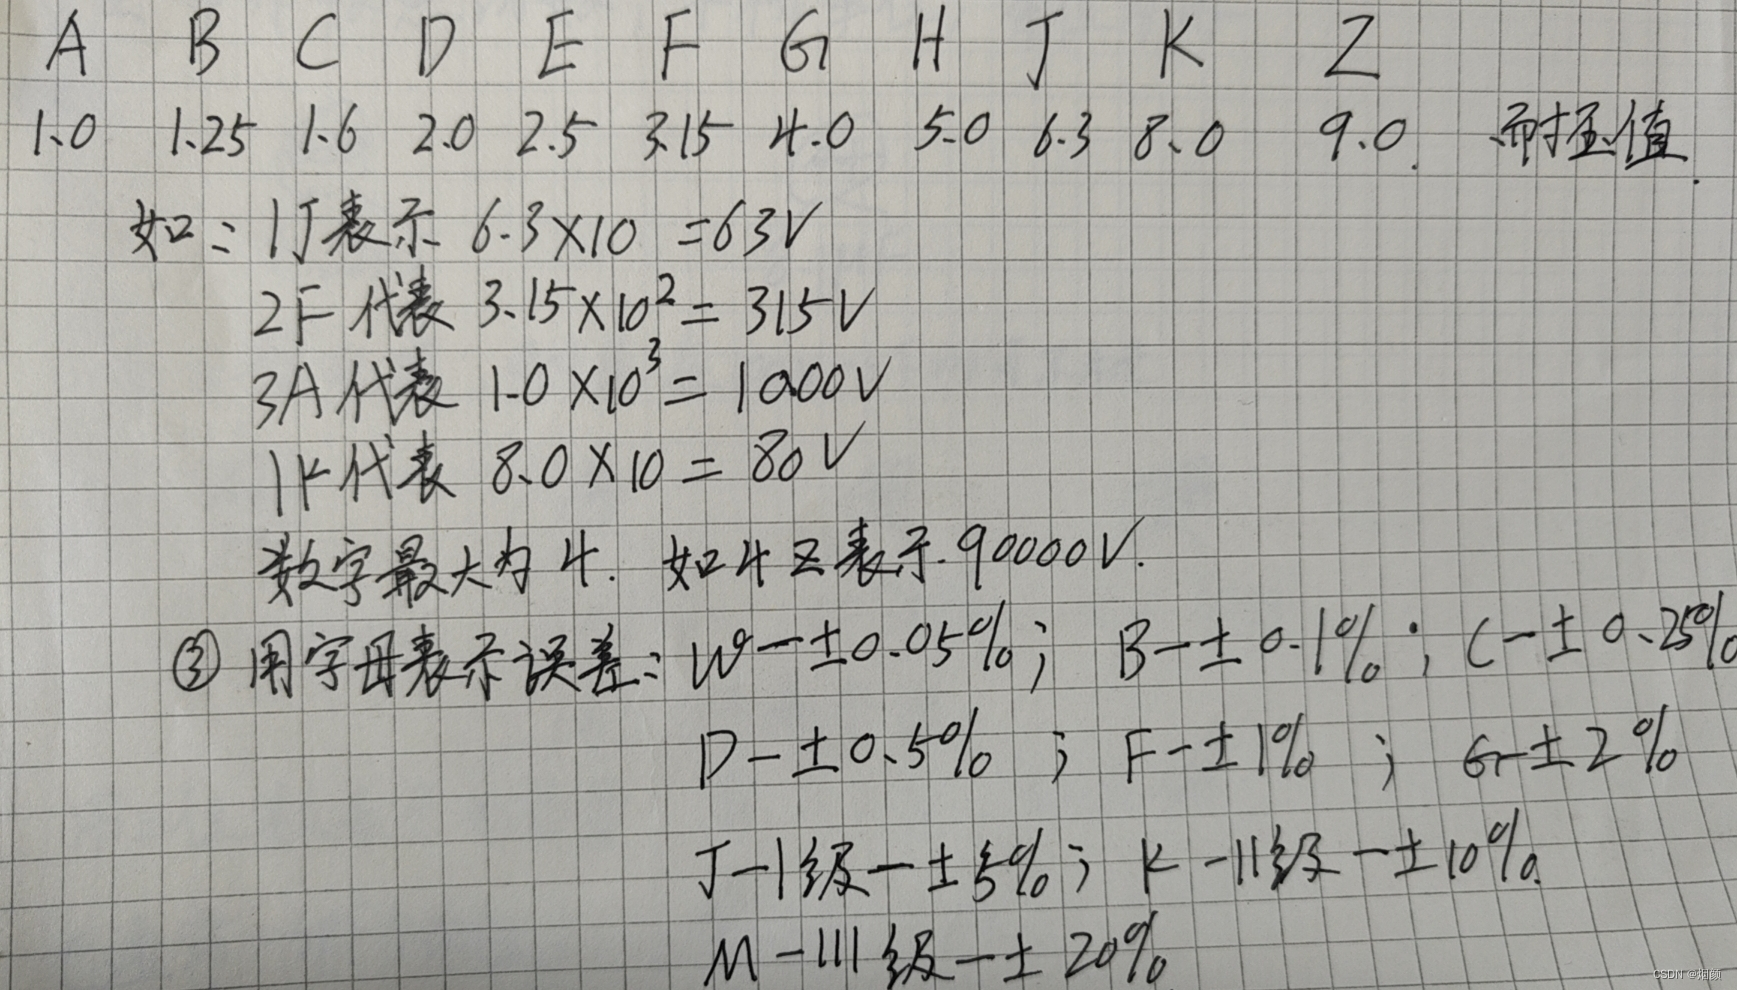 A B C D E F G H J K Z
1.0 1.25 1.6 2.0 2.5 3.15 4.0 5.0 6.3 8.0 9.0. 耐压值.
如: 1J表示 6.3×10 =63V
2F 代表 3.15×10² = 315V
3A代表 1.0×10³ = 1000V
1K代表 8.0×10 = 80V
数字最大为4. 如4Z表示90000V.
③ 用字母表示误差: W-±0.05%; B-±0.1%; C-±0.25%
D-±0.5% ; F-±1% ; G-±2%
J-I级-±5%; K-II级-±10%.
M-III级-±20%
CSDN @烟颜